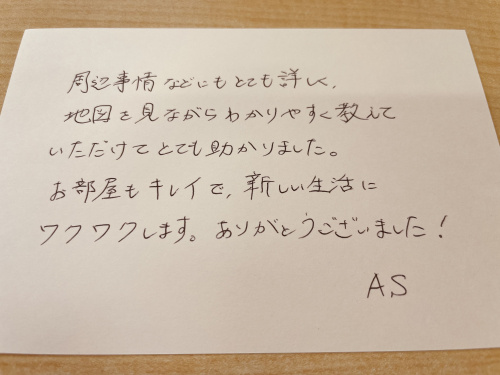 周辺事情などにもとても詳しく、
地図を見ながらわかりやすく教えて
いただけてとても助かりました。
お部屋もキレイで、新しい生活に
ワクワクします。ありがとうございました！
A.S